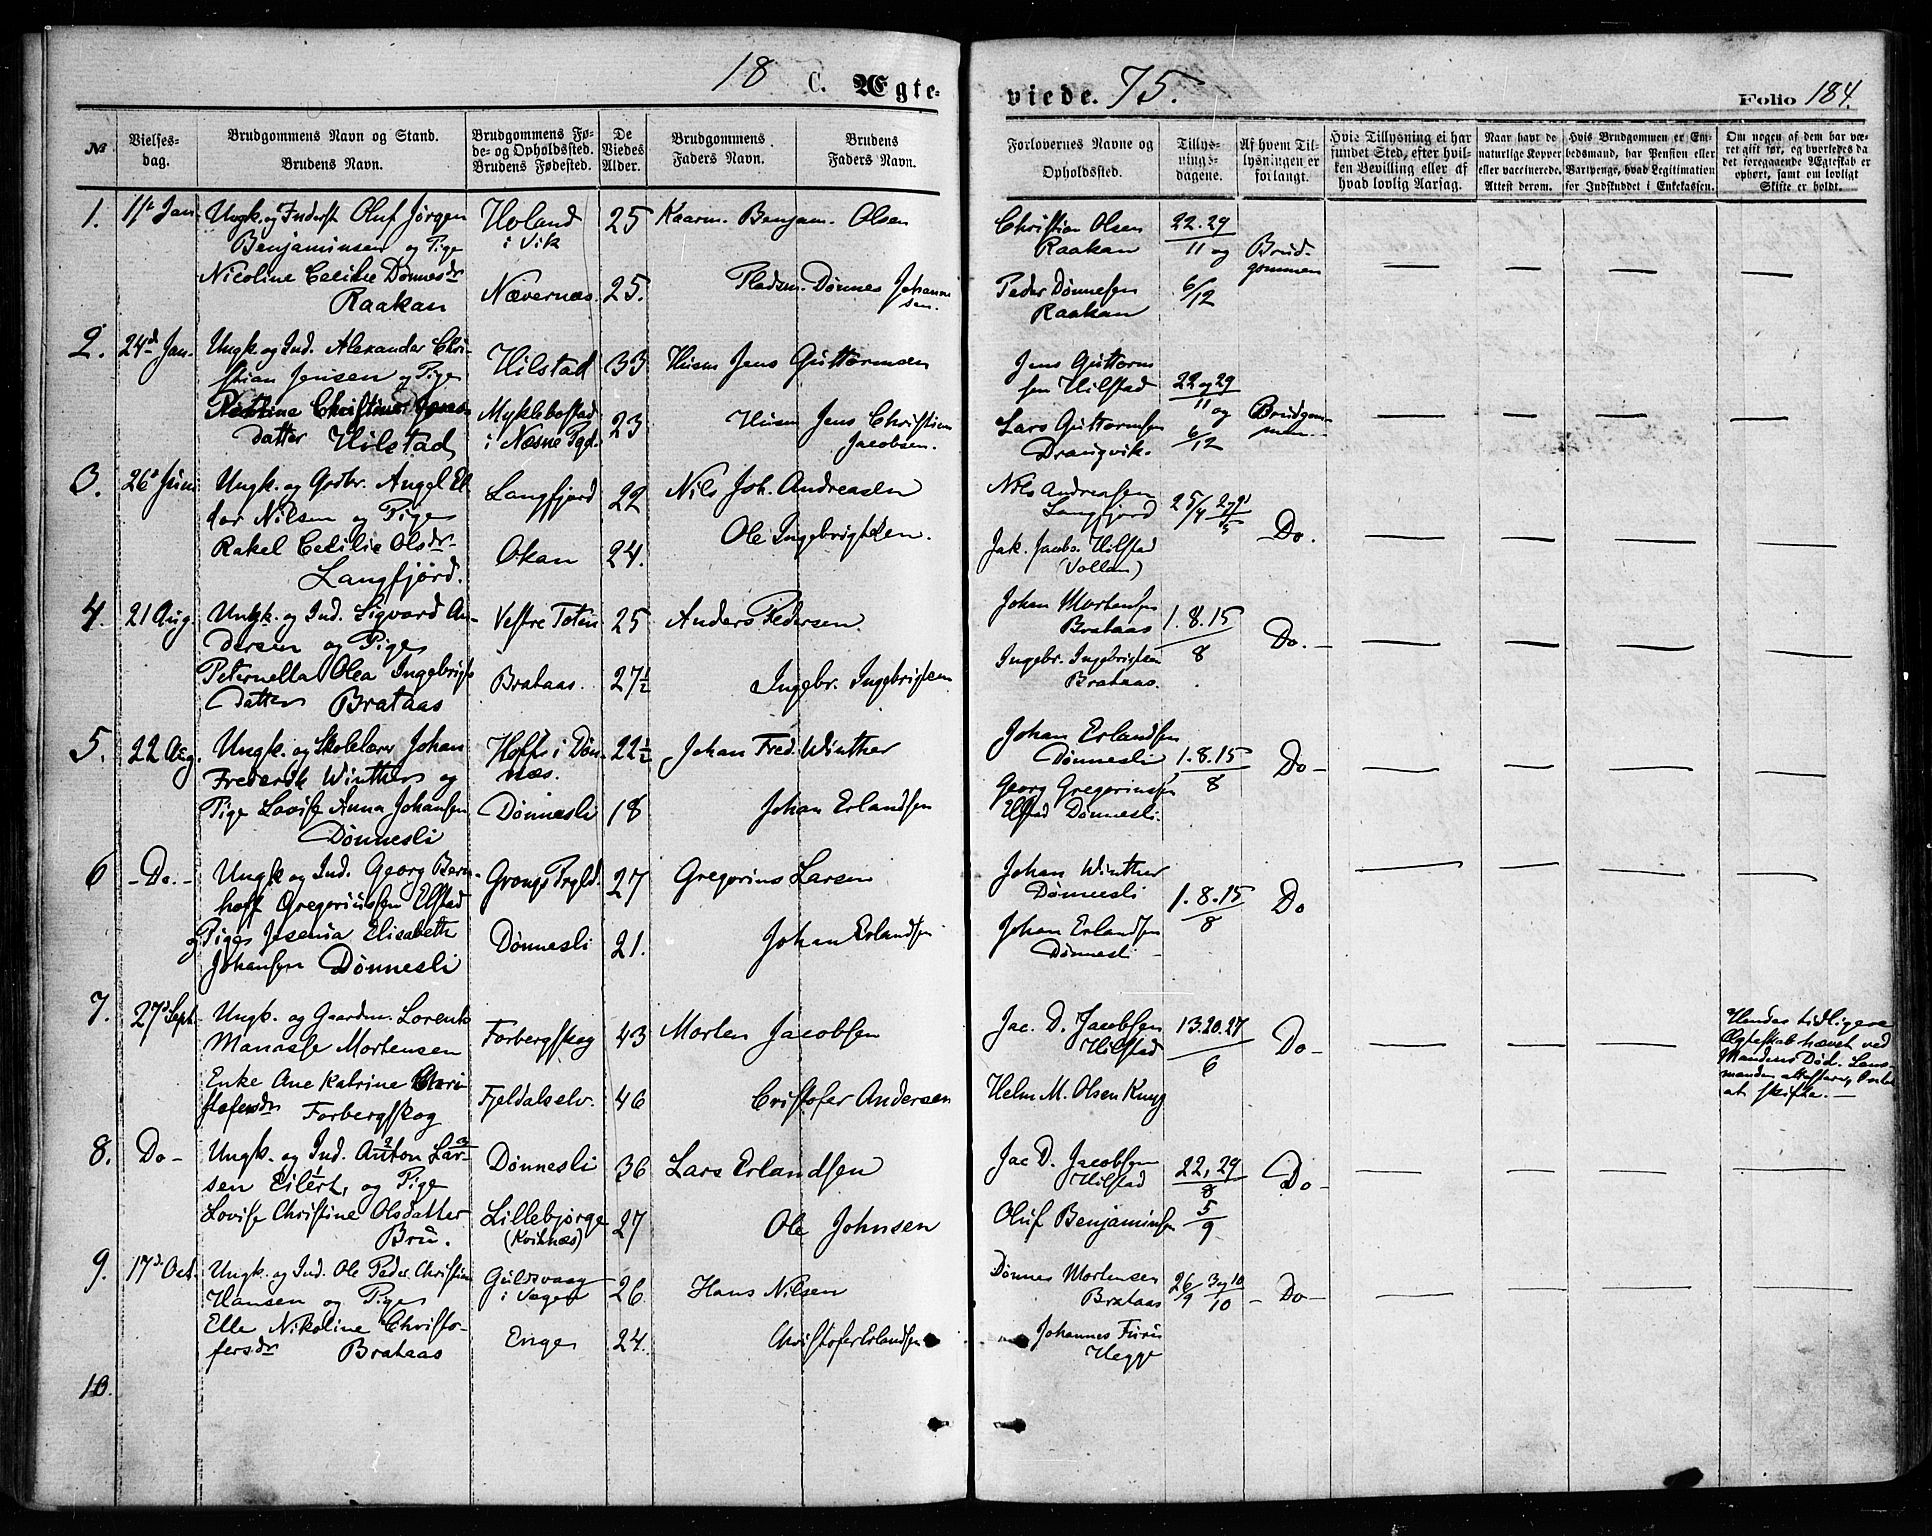 18 C. Ægte-
viede. 75.
Folio 184.
№
Vielses-
dag.
Brudgommens Navn og Stand.
Brudens Navn.
Brudgommens Fø-
de- og Opholdssted.
Brudens Fødested.
De
Viedes
Alder.
Brudgommens
Faders Navn.
Brudens
Faders Navn.
Forlovernes Navne og
Opholdssted.
Tillys-
nings-
dagene.
Af hvem Til-
lysningen er
forlangt.
Hvis Tillysning ei har
fundet Sted, efter hvil-
ken Bevilling eller af
hvad lovlig Aarsag.
Naar havt de
naturlige Kopper
eller vaccinerede.
Attest derom.
Hvis Brudgommen er Em-
bedsmand, har Pension eller
Vartpenge, hvad Legitimation
for Indskuddet i Enkekassen.
Om nogen af dem har væ-
ret gift før, og hvorledes da
det foregaaende Ægteskab er
ophørt, samt om lovligt
Skifte er holdt.
1. Jan. Ungk. og Inderst Oluf Jørgen
Benjaminsen og Pige
Nicoline Cecilie Dønnesdr
Raakan
Holand
i Vik
Nævernæs.
25
25.
Kaarm. Benjam. Olsen
Pladsm. Dønnes Johanne
sen.
Christian Olsen
Raakan
Peder Dønnesen
Raakan
22. 29
11 og
6/12
Brud-
gommen
2. 24d Jan. Ungk. og Ind. Alexander Chri-
stian Jensen og Pige
Christine
datter Hilstad
Hilstad
Myklebostad
i Næsne Pgd.
33
23
Husm Jens Guttormsen
Husm Jens Christian
Jacobsen.
Jens Guttorm
sen Hilstad
Lars Guttormsen
Drangvik.
22 og 29
11 og
6/12
Brudgom-
men
3. 26d Juni Ungk. og Grdbr. Angel El
dor Nilsen og Pige
Rakel Cecilie Olsdr
Langfjord.
Langfjord
Okan
22
24.
Nils Joh. Andreasen
Ole Ingebrigtsen.
Nils Andreasen
Langfjord
Jak. Jacobs. Hilstad
(Vollan)
25/4 2 og 9
5
Do.
4. 21 Aug. Ungk. og Ind. Sigvard An-
dersen og Pige
Peternella Olea Ingebrigts
datter Brataas
Vestre Toten
Brataas.
25
27½
Anders Pedersen.
Ingebr. Ingebrigtsen
Johan Mortensen
Brataas
Ingebr. Ingebrigtsen
Brataas.
1. 8. 15
8
Do.
5. 22 Aug. Ungk. og Skolelærer Johan
Frederik Winther og
Pige Lovise Anna Johansen
Dønnesli
i Døn-
næs.
Dønnesli
22½
18
Johan Fred. Winther
Johan Erlandsen
Johan Erlandsen
Dønnesli
Georg Gregoriussen
Elstad Dønnesli.
1. 8. 15
8
Do
6 Do. Ungk og Ind. Georg Bern-
hoff Gregoriussen Elstad
og Pige Jesenia Elisabeth
Johansen Dønnesli
Grongs Prgld.
Dønnesli
27
21.
Gregorius Larsen
Johan Erlandsen
Johan Winther
Dønnesli
Johan Erlandsen
Dønnesli
1. 8. 15
8
Do
7. 27d Sept. Ungk. og Gaardm. Lorents
Manasse Mortensen
Enke Ane Katrine Chri
stofersdr Forbergskog
Forbergskog
Fjeldalselv.
43
46
Morten Jacobsen
Cristofer Andersen
Jac. D. Jacobsen
Hilstad
Helm M. Olsen Krug
13. 20. 27
6
Do
Hendes tidligere
Ægteskab hævet ved
Mandens Død. Lens-
manden attesterer, Intet
at skifte.
8. Do Ungk. og Ind. Anton Lar-
sen Eilert, og Pige
Lovise Christine Olsdatter
Bru.
Dønnesli
Lillebjørge
(Kvitnæs)
36
27
Lars Erlandsen
Ole Johnsen
Jac D. Jacobsen
Hilstad
Oluf Benjaminsen
22, 29
8
5
9
Do
9. 17d Oct. Ungk. og Ind. Ole Peder Christian
Hansen og Pige
Elle Nikoline Christo-
fersdr Brataas
Guldsvaag
i Vegen
Enge
26
24.
Hans Nilsen
Christofer Erlandsen
Dønnes Mortensen
Brataas
Johannes Furu
Hegge
26/9 3 og 10
10
Do
10.